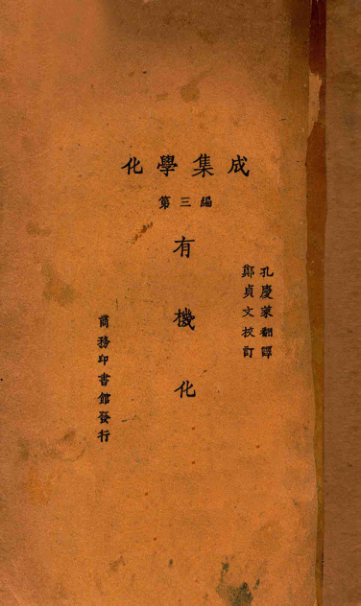 化學集成
第三編
孔慶萊翻譯
鄭貞文校訂
有機化
商務印書館發行